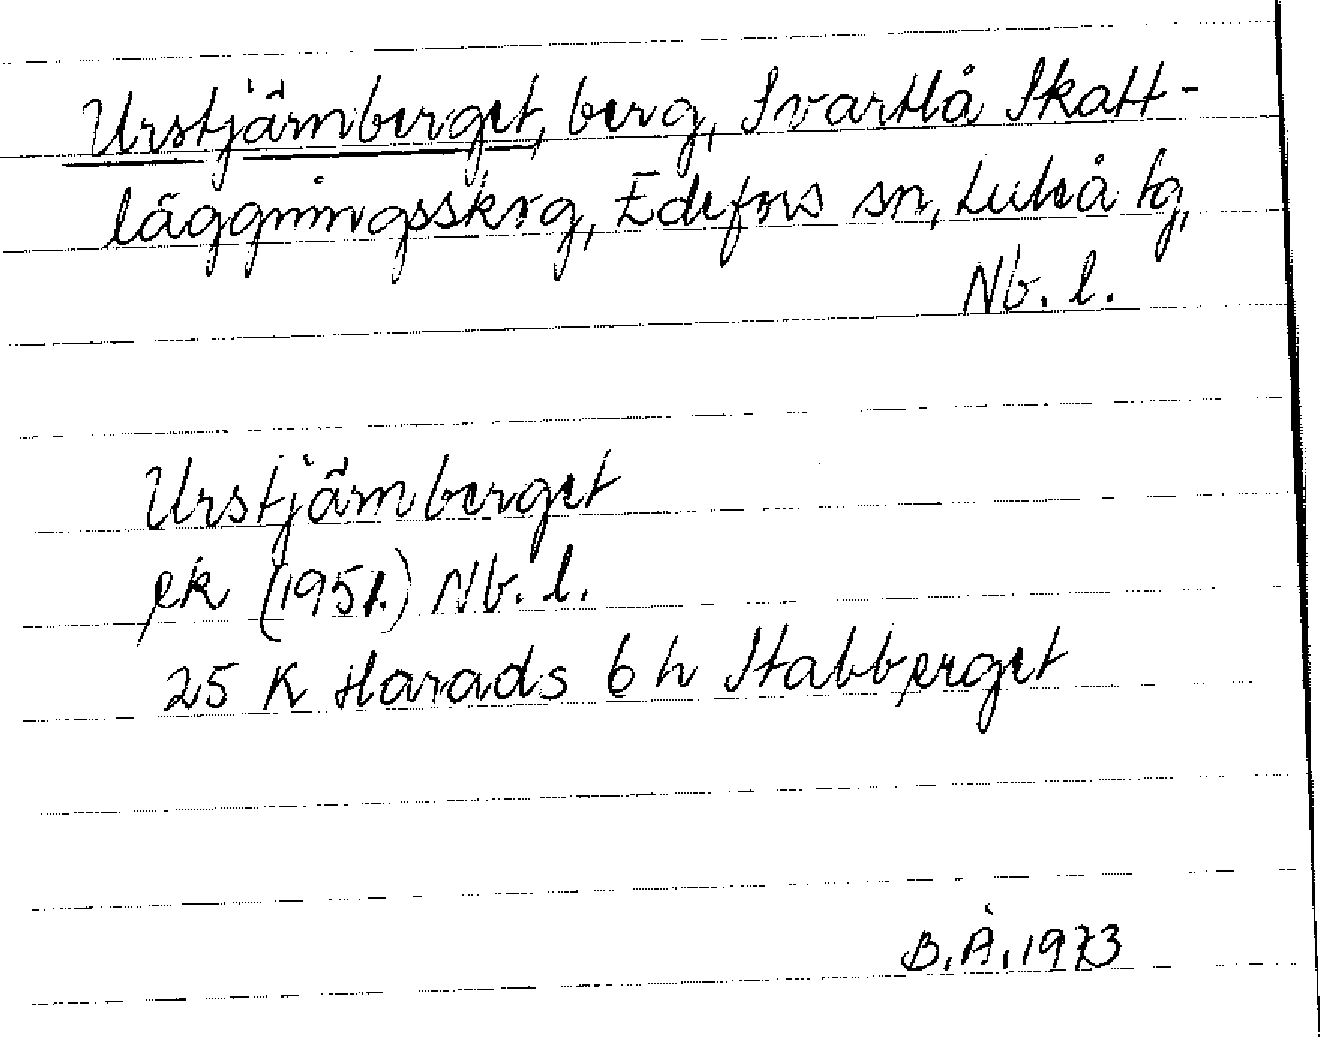 Urstjärnberget, berg, Svartlå Skatt-
läggningsskrg, Edefors sn, Luleå tg,
Nb. l.
Urstjärnberget
ek (1951.) Nb. l.
25 K Harads 6 h Stabberget
B.Å. 1973